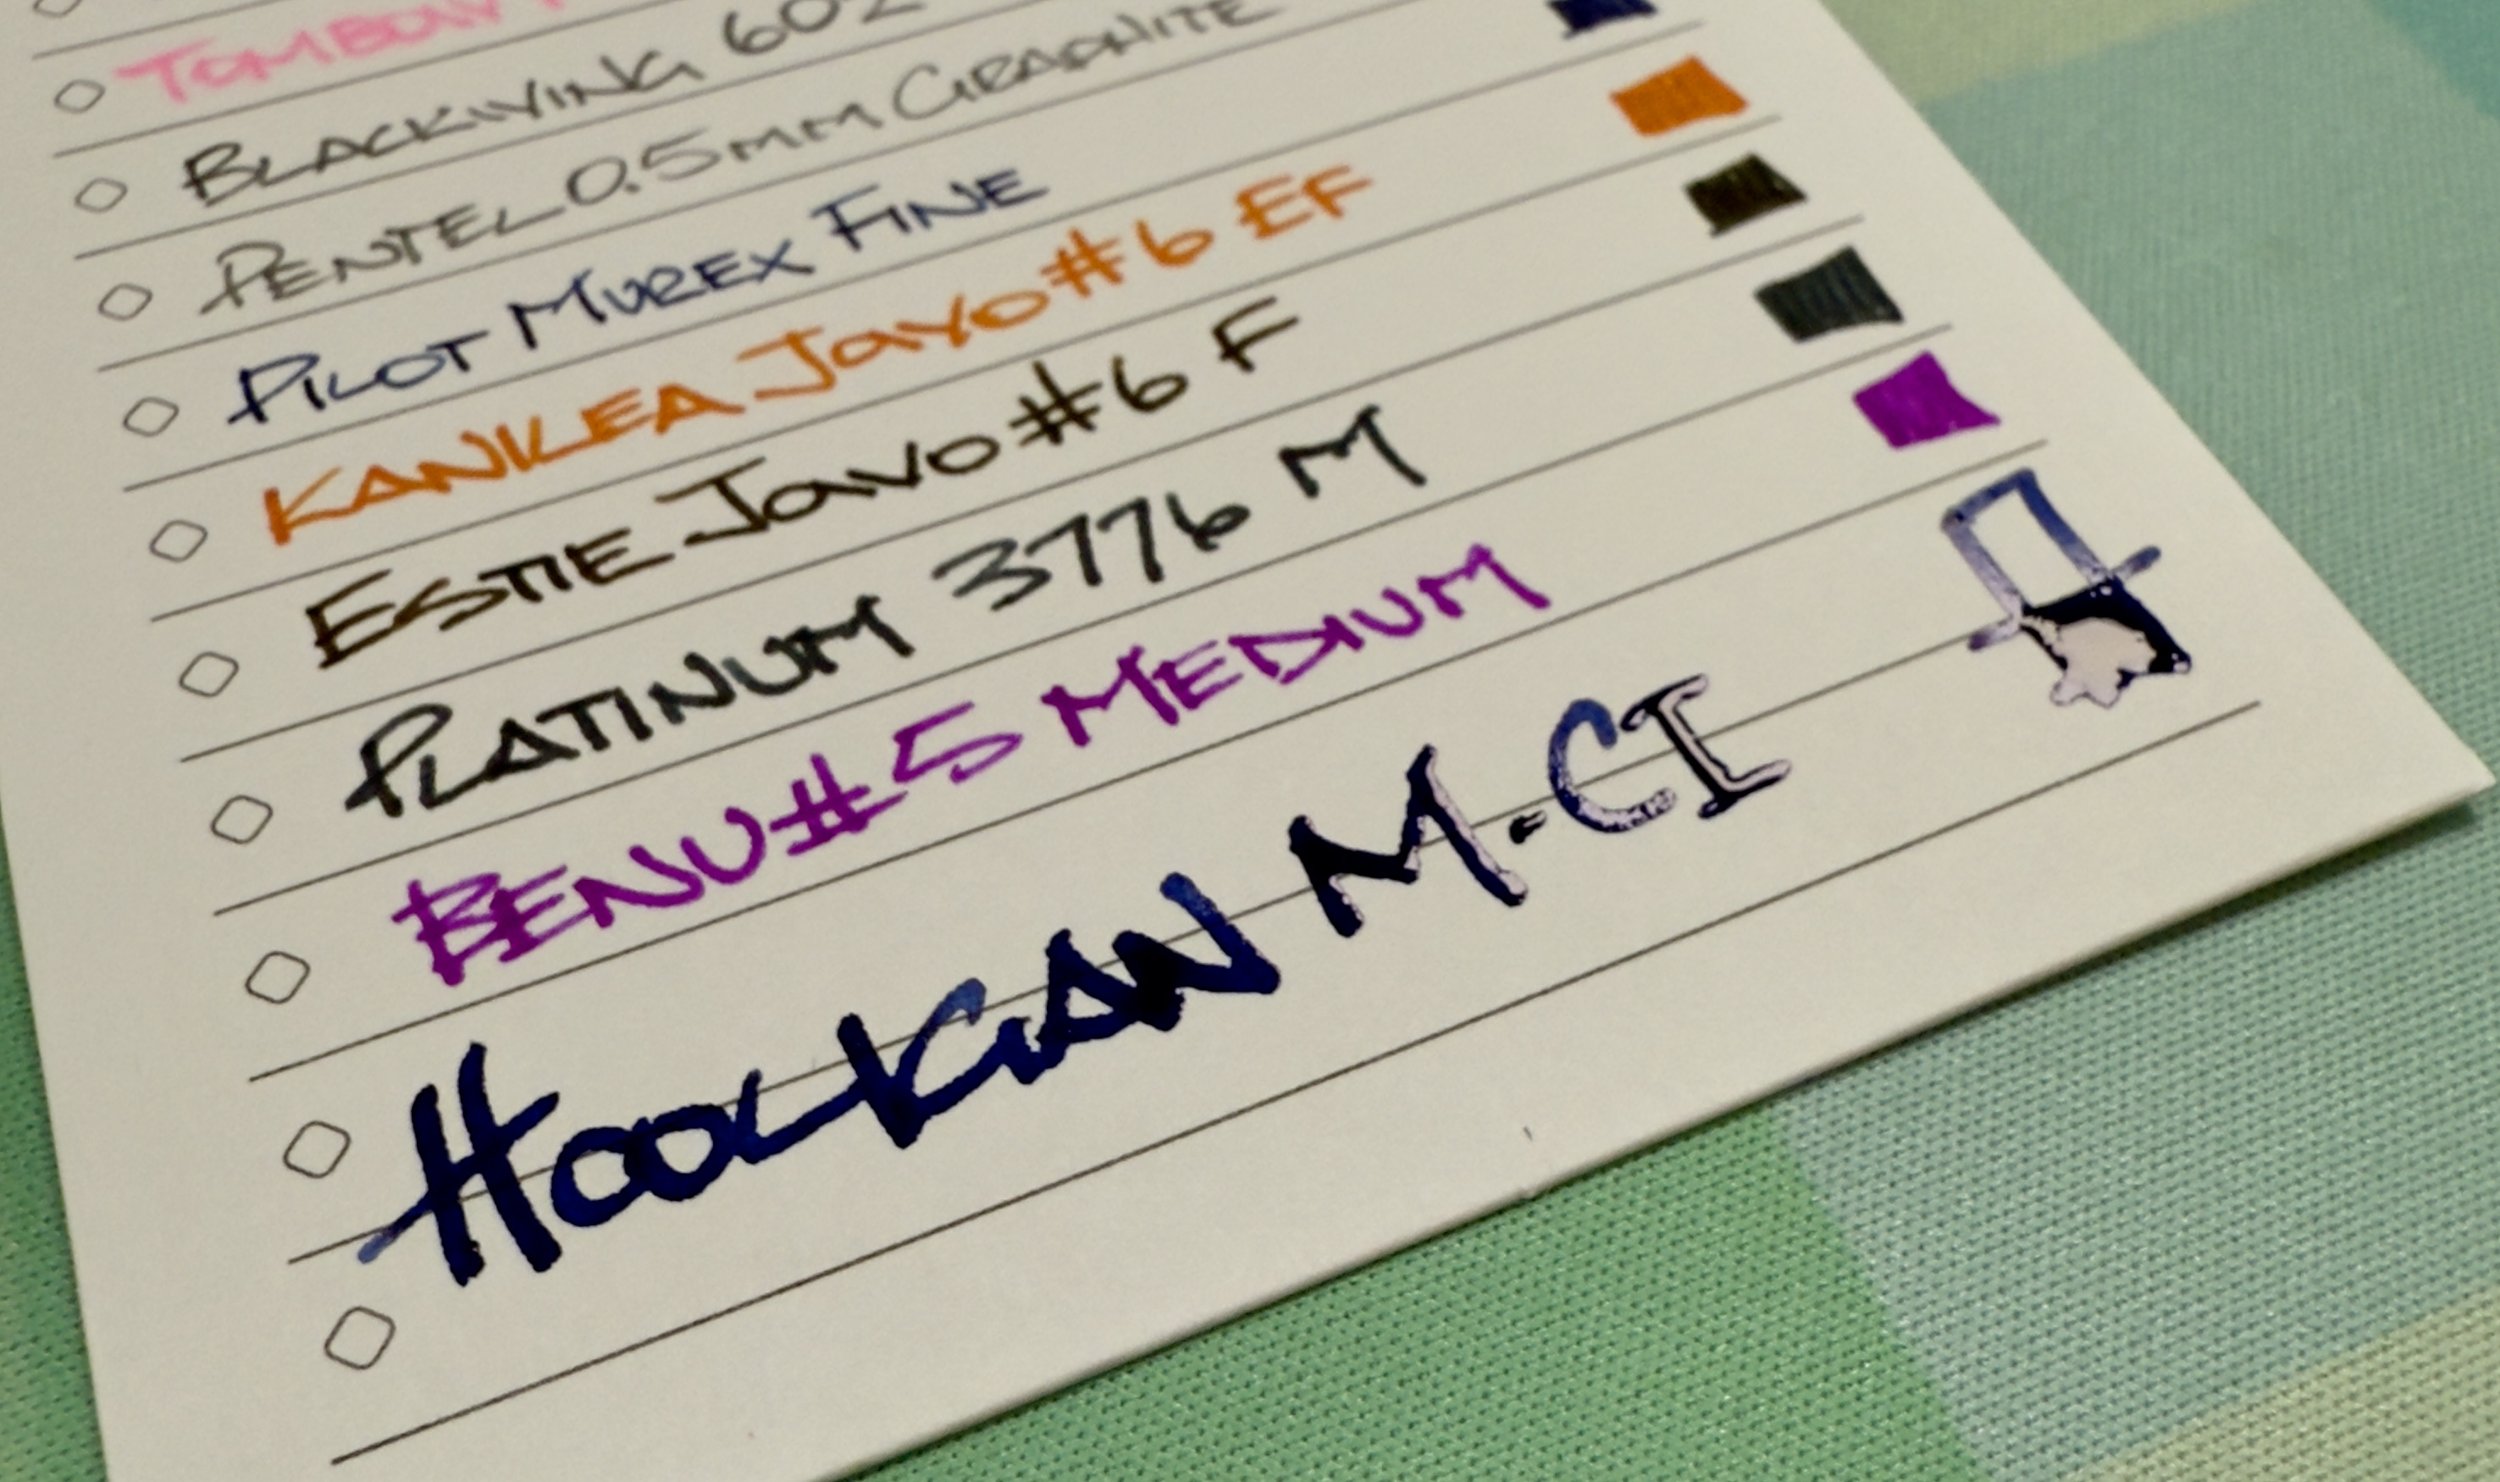 TOMBOW
BLACKWING 602
PENTEL 0.5mm GRAPHITE
PILOT MUREX FINE
KANILEA JOWO #6 EF
ESTIE JOWO #6 F
PLATINUM 3776 M
BENU #5 MEDIUM
HOOLIGAN M.CI